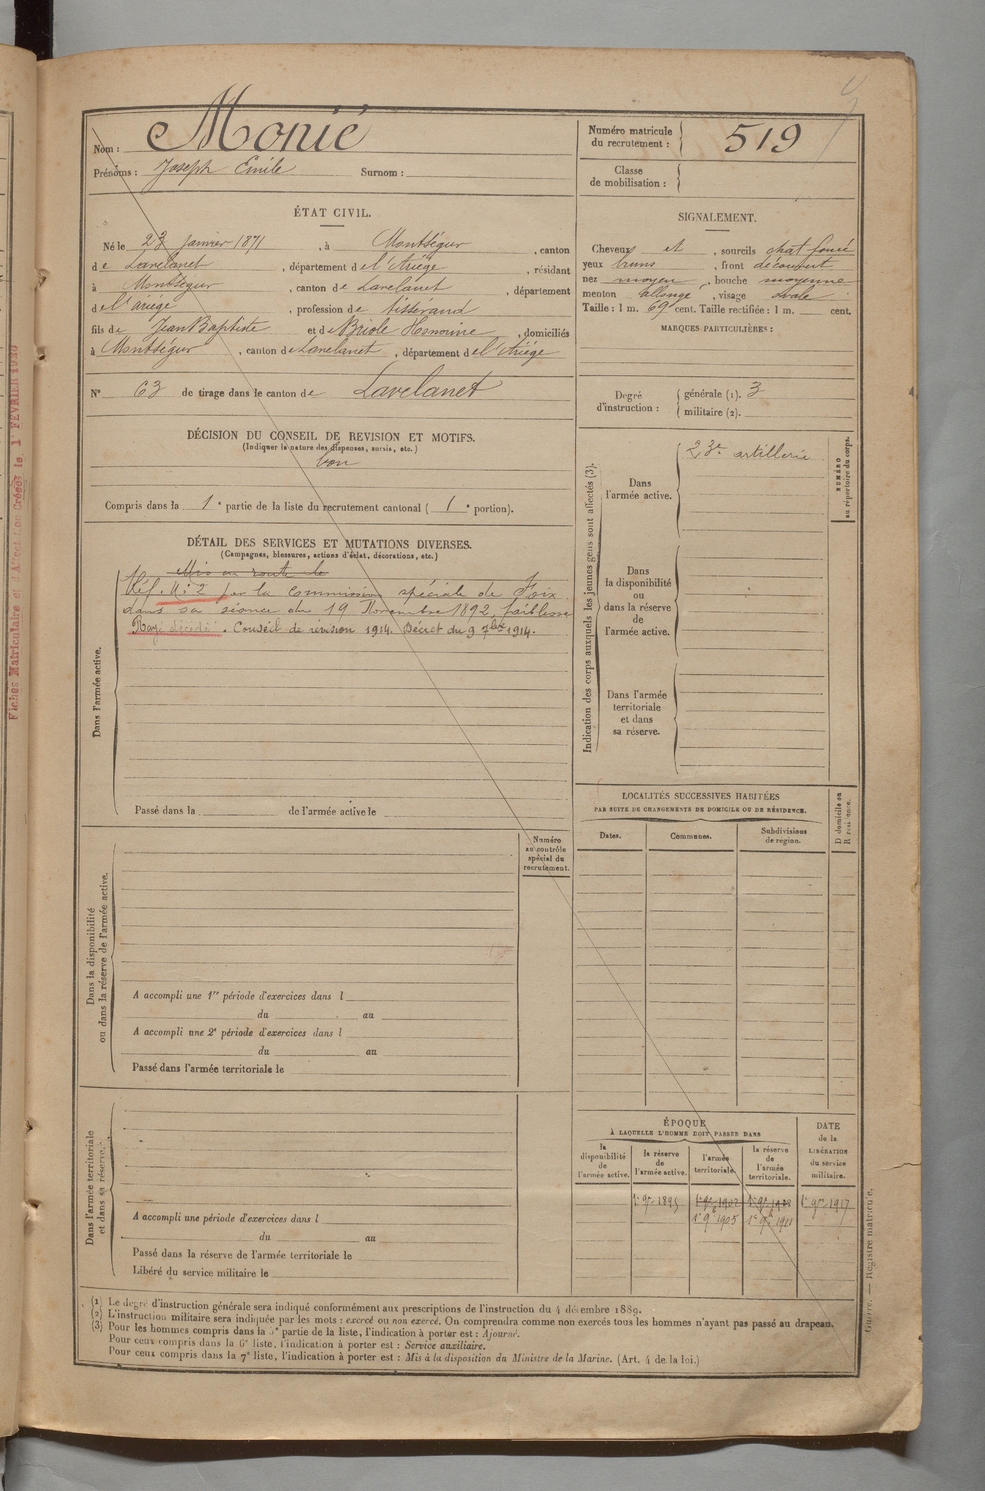 Nom : Monié
Prénoms : Joseph Emile Surnom :
Numéro matricule du recrutement : 519
Classe de mobilisation :
ÉTAT CIVIL.
Né le 23 janvier 1871, à Montségur, canton
de Lavelanet, département de l'Ariège, résidant
à Montségur, canton de Lavelanet, département
de l'ariège, profession de tisserand
fils de Jean Baptiste et de Briole Honorine, domiciliés
à Montségur, canton de Lavelanet, département de l'Ariège
N° 63 de tirage dans le canton de Lavelanet
SIGNALEMENT.
Cheveux et, sourcils chat foncé
yeux bruns, front découvert
nez moyen, bouche moyenne
menton allongé, visage ovale
Taille : 1 m. 69 cent. Taille rectifiée : 1 m. cent.
MARQUES PARTICULIÈRES :
Degré d'instruction : générale (1). 3
militaire (2).
DÉCISION DU CONSEIL DE REVISION ET MOTIFS.
(Indiquer la nature des dispenses, sursis, etc.)
bon
Compris dans la 1e partie de la liste du recrutement cantonal (1e portion).
DÉTAIL DES SERVICES ET MUTATIONS DIVERSES.
(Campagnes, blessures, actions d'éclat, décorations, etc.)
Mis en route le
Réf. N: 2 par la Commission spéciale de Foix
dans sa séance du 19 Novembre 1892 faiblesse
Rayé décédé. Conseil de révision 1914. Décret du 9 7bre 1914.
Dans l'armée active.
Passé dans la de l'armée active le
Indication des corps auxquels les jeunes gens sont affectés (3).
NUMÉRO au répertoire du corps.
Dans l'armée active.
23e artillerie
Dans la disponibilité ou dans la réserve de l'armée active.
Dans l'armée territoriale et dans sa réserve.
LOCALITÉS SUCCESSIVES HABITÉES
PAR SUITE DE CHANGEMENTS DE DOMICILE OU DE RÉSIDENCE.
Dates.
Communes.
Subdivisions de région.
D domicile ou R résidence.
Dans la disponibilité ou dans la réserve de l'armée active.
Numéro au contrôle spécial du recrutement.
A accompli une 1re période d'exercices dans l
du au
A accompli une 2e période d'exercices dans l
du au
Passé dans l'armée territoriale le
Dans l'armée territoriale et dans sa réserve.
A accompli une période d'exercices dans l
du au
Passé dans la réserve de l'armée territoriale le
Libéré du service militaire le
ÉPOQUE
À LAQUELLE L'HOMME DOIT PASSER DANS
la disponibilité de l'armée active.
la réserve de l'armée active.
l'armée territoriale.
la réserve de l'armée territoriale.
DATE de la LIBÉRATION du service militaire.
1er 9bre 1895
1er 9bre 1905
1er 9bre 1911
1er 9bre 1917
(1) Le degré d'instruction générale sera indiqué conformément aux prescriptions de l'instruction du 4 décembre 1889.
(2) L'instruction militaire sera indiquée par les mots : exercé ou non exercé. On comprendra comme non exercés tous les hommes n'ayant pas passé au drapeau.
(3) Pour les hommes compris dans la 5e partie de la liste, l'indication à porter est : Ajourné.
Pour ceux compris dans la 6e liste, l'indication à porter est : Service auxiliaire.
Pour ceux compris dans la 7e liste, l'indication à porter est : Mis à la disposition du Ministre de la Marine. (Art. 4 de la loi.)
Guerre. — Registre matricule.
Fiches Matriculaire et d'Affectation Créées le 1er FÉVRIER 1920